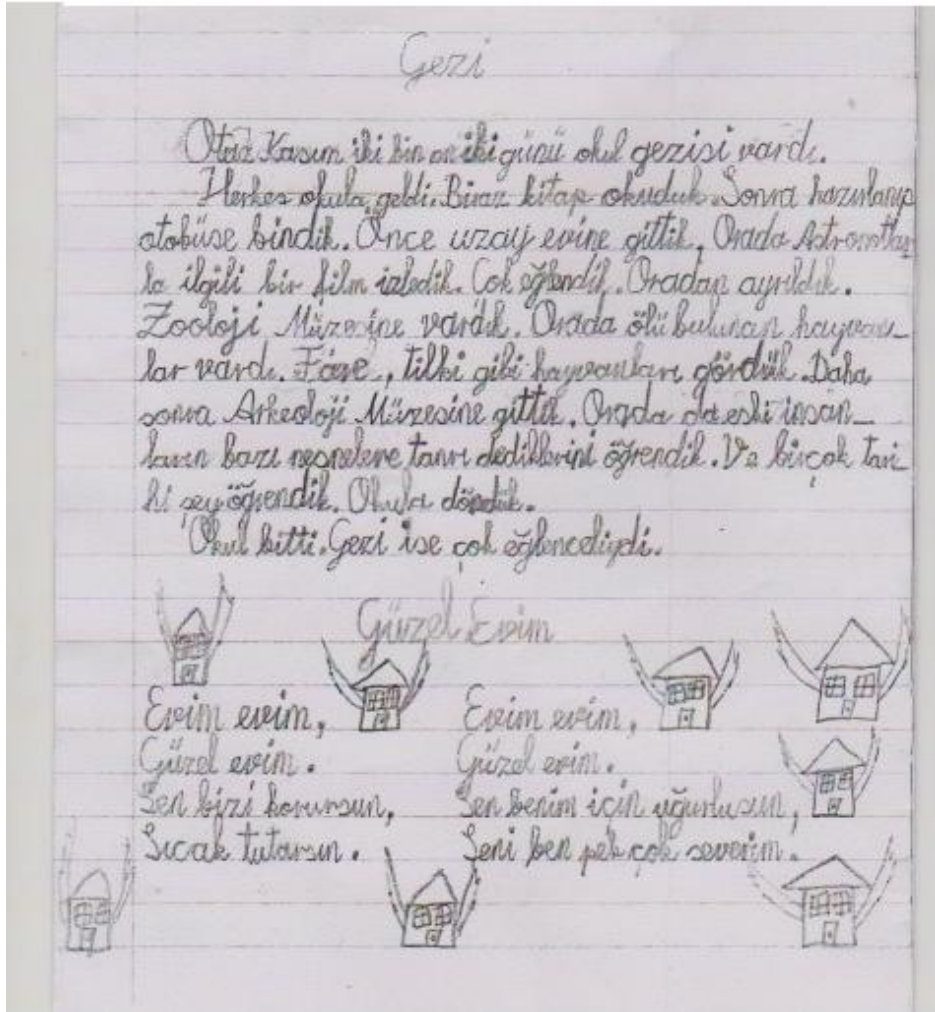 Gezi
Otuz Kasım iki bin on iki günü okul gezisi vardı.
Herkes okula geldi. Biraz kitap okuduk. Sonra hazırlanıp
otobüse bindik. Önce uzay evine gittik. Orada Astronotlar
la ilgili bir film izledik. Çok eğlendik. Oradan ayrıldık.
Zooloji Müzesine vardık. Orada ölü bulunan hayvan_
lar vardı. Fare, tilki gibi hayvanları gördük. Daha
sonra Arkeoloji Müzesine gittik. Orada da eski insan_
ların bazı nesnelere tanrı dediklerini öğrendik. Ve birçok tari
hi şey öğrendik. Okula döndük.
Okul bitti. Gezi ise çok eğlenceliydi.
Güzel Evim
Evim evim,
Güzel evim.
Sen bizi korursun,
Sıcak tutarsın.
Evim evim,
Güzel evim.
Sen benim için uğurlusun,
Seni ben pek çok severim.